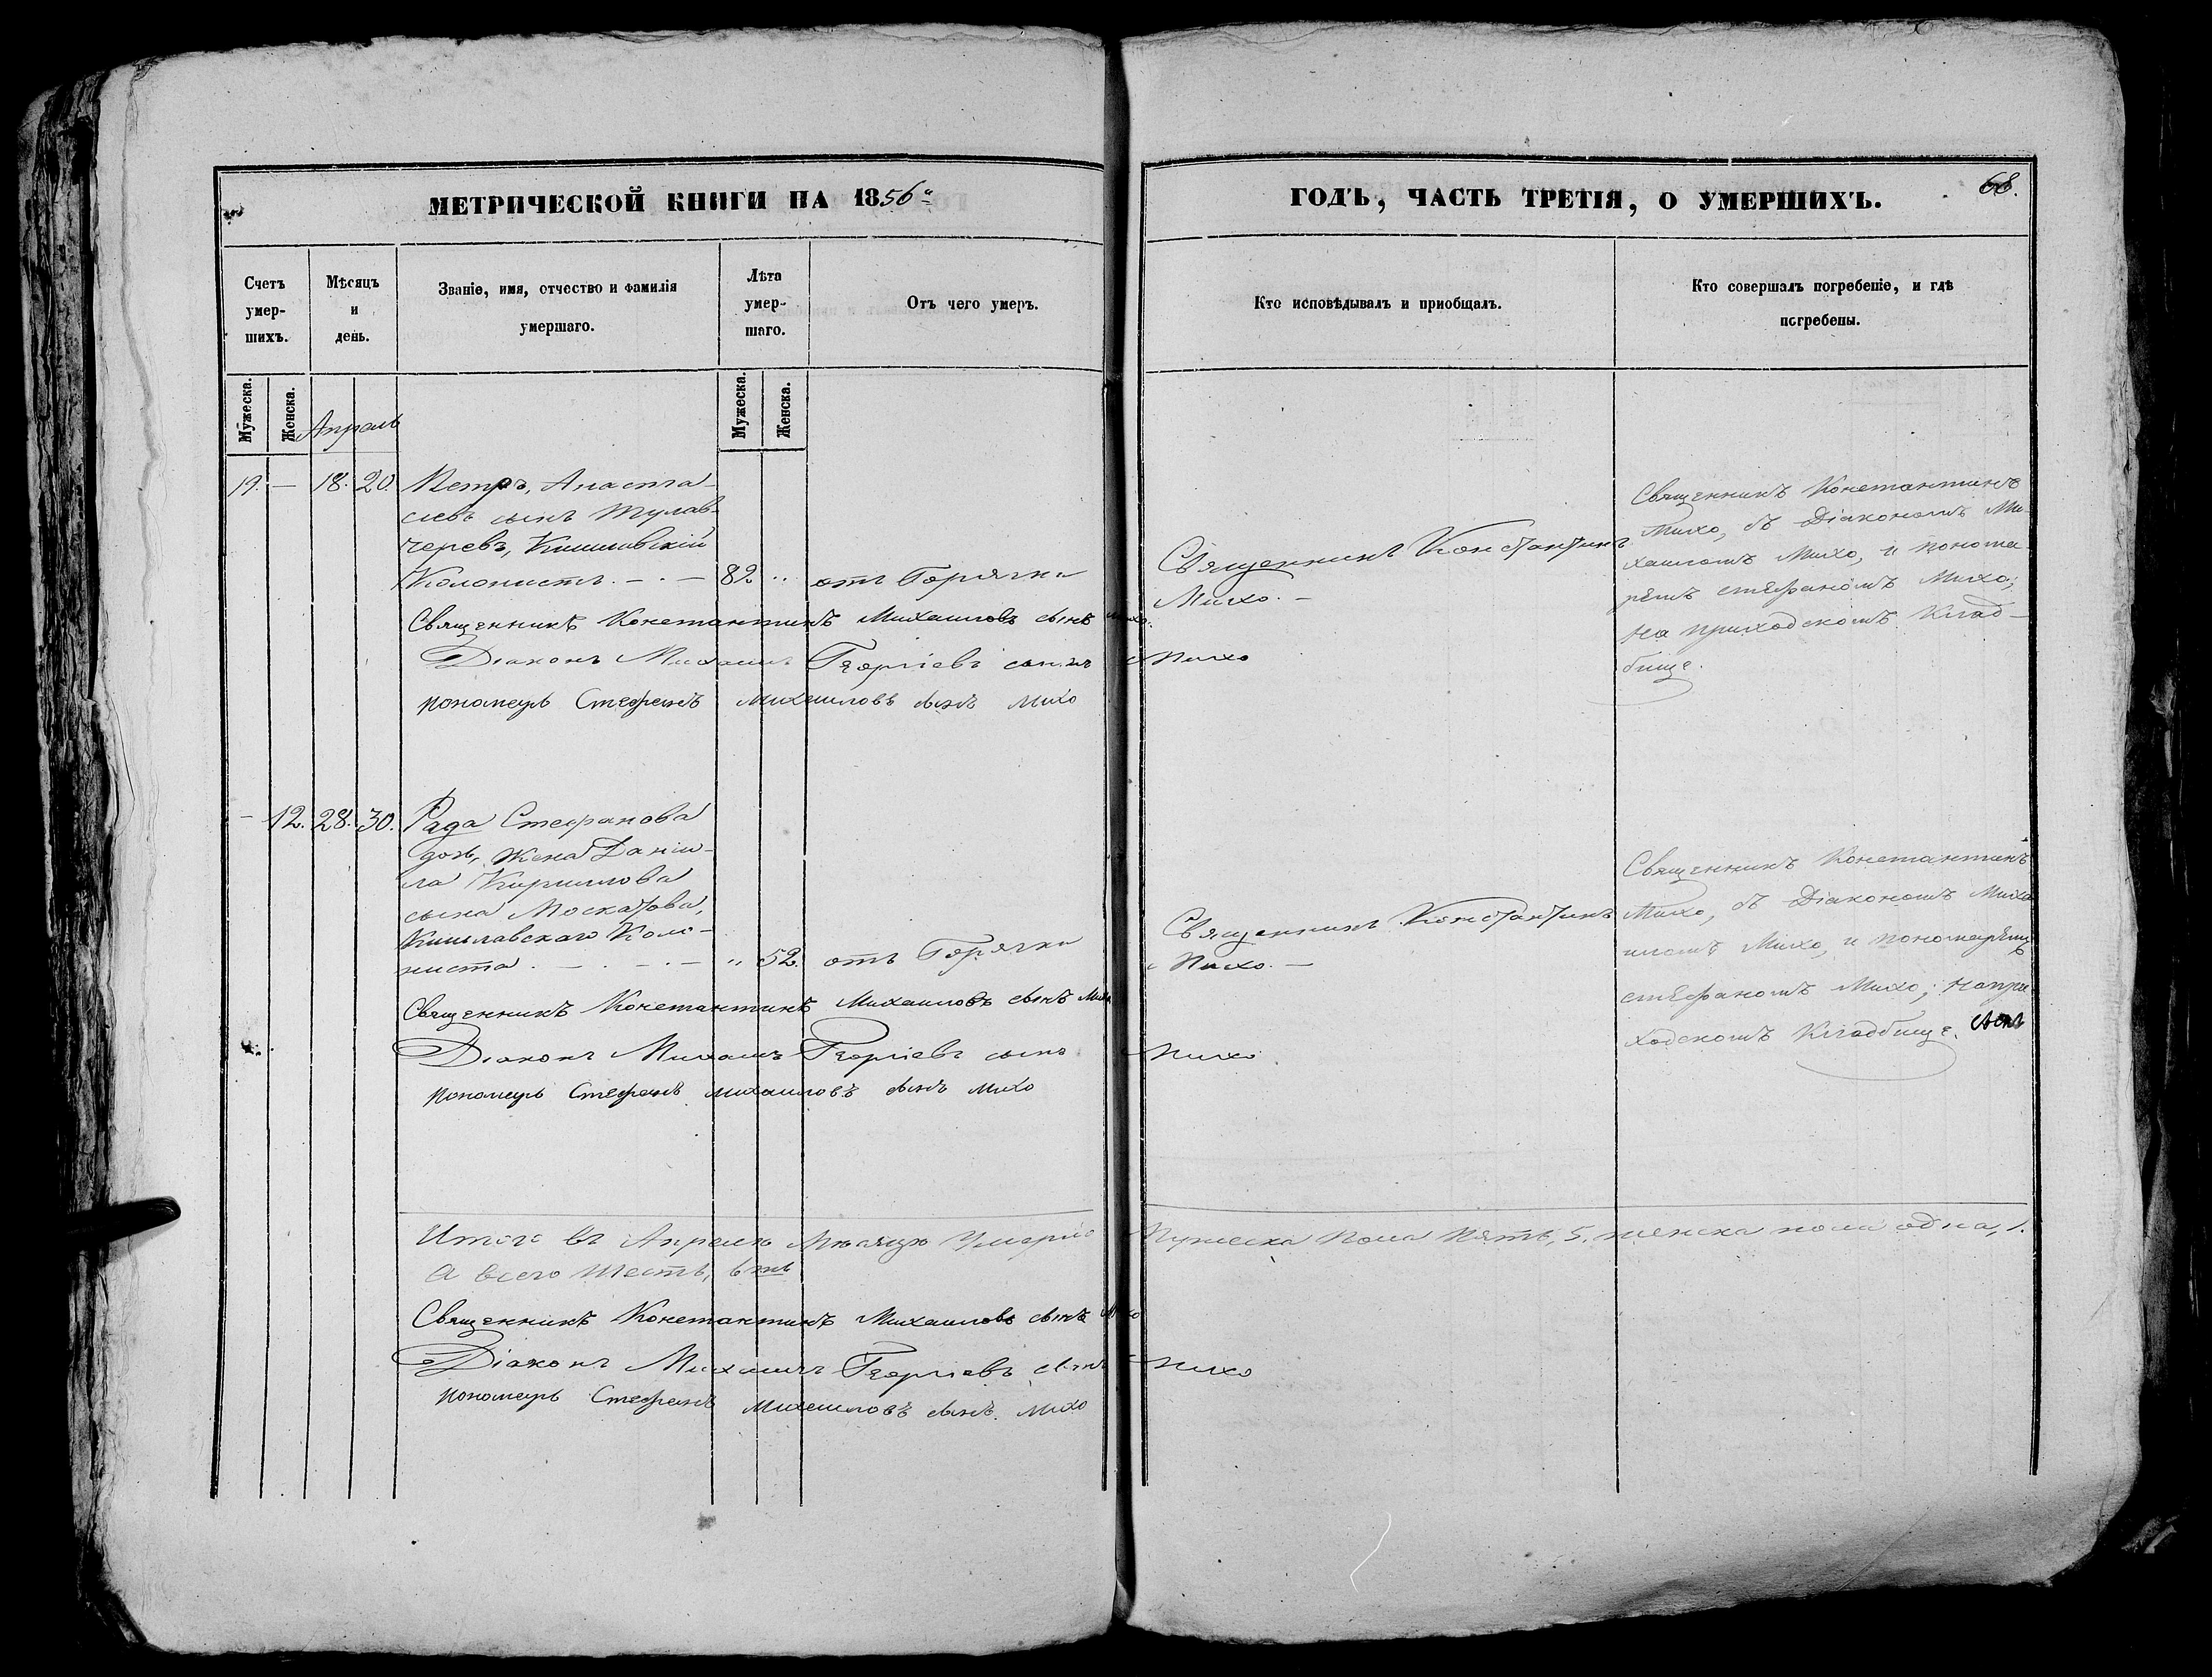 МЕТРИЧЕСКОЙ КНИГИ НА 1856й
Счетъ умер- шихъ.
Мѣсяцъ и день.
Званіе, имя, отчество и фамилія умершаго.
Лѣта умер- шаго.
Отъ чего умеръ.
Мужеска.
Женска.
Мужеска.
Женска.
Апрель
19. — 18. 20. Петръ, Анаста-
сіевъ сынъ
черевъ,
Колонистъ. — · — 82 „ отъ Горячки
Священникъ Константинъ Михаиловъ сынъ Михо.
Діаконъ Михаилъ Георгіевъ сынъ Михо
пономарь Стефанъ Михаиловъ сынъ Михо
— 12. 28. 30. Рада Стефанова
дочь, жена Даніи-
ла Кирилова
сына Москатова,
Колo-
ниста. — . — . — „ 52. отъ Горячки
Священникъ Константинъ Михаиловъ сынъ Михо
Діаконъ Михаилъ Георгіевъ сынъ Михо
пономарь Стефанъ Михаиловъ сынъ Михо
Итого въ Апреле Мѣсяце Умерло Мужеска Пола Пять, 5. женска пола одна, 1.
А всего шесть, 6ть
Священникъ Константинъ Михаиловъ сынъ Михо
Діаконъ Михаилъ Георгіевъ сынъ Михо
пономарь Стефанъ Михаиловъ сынъ Михо
ГОДЪ, ЧАСТЬ ТРЕТІЯ, О УМЕРШИХЪ. 68.
Кто исповѣдывалъ и пріобщалъ.
Кто совершалъ погребеніе, и гдѣ
погребены.
Священникъ Константинъ
Михо. —
Священникъ Константинъ
Михо, съ Діакономъ Ми-
хаиломъ Михо, и понома-
ремъ Стефаномъ Михо;
на приходскомъ Клад-
бище.
Священникъ Константинъ
Михо. —
Священникъ Константинъ
Михо, съ Діакономъ Миха
иломъ Михо, и пономаремъ
Стефаномъ Михо; на при
ходскомъ Кладбище.